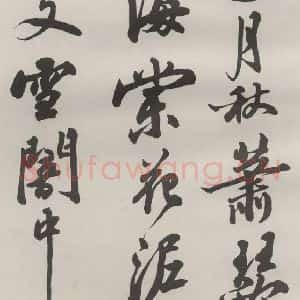 月秋蕭瑟
海棠花泥
支雪闇中
shufawang.cn